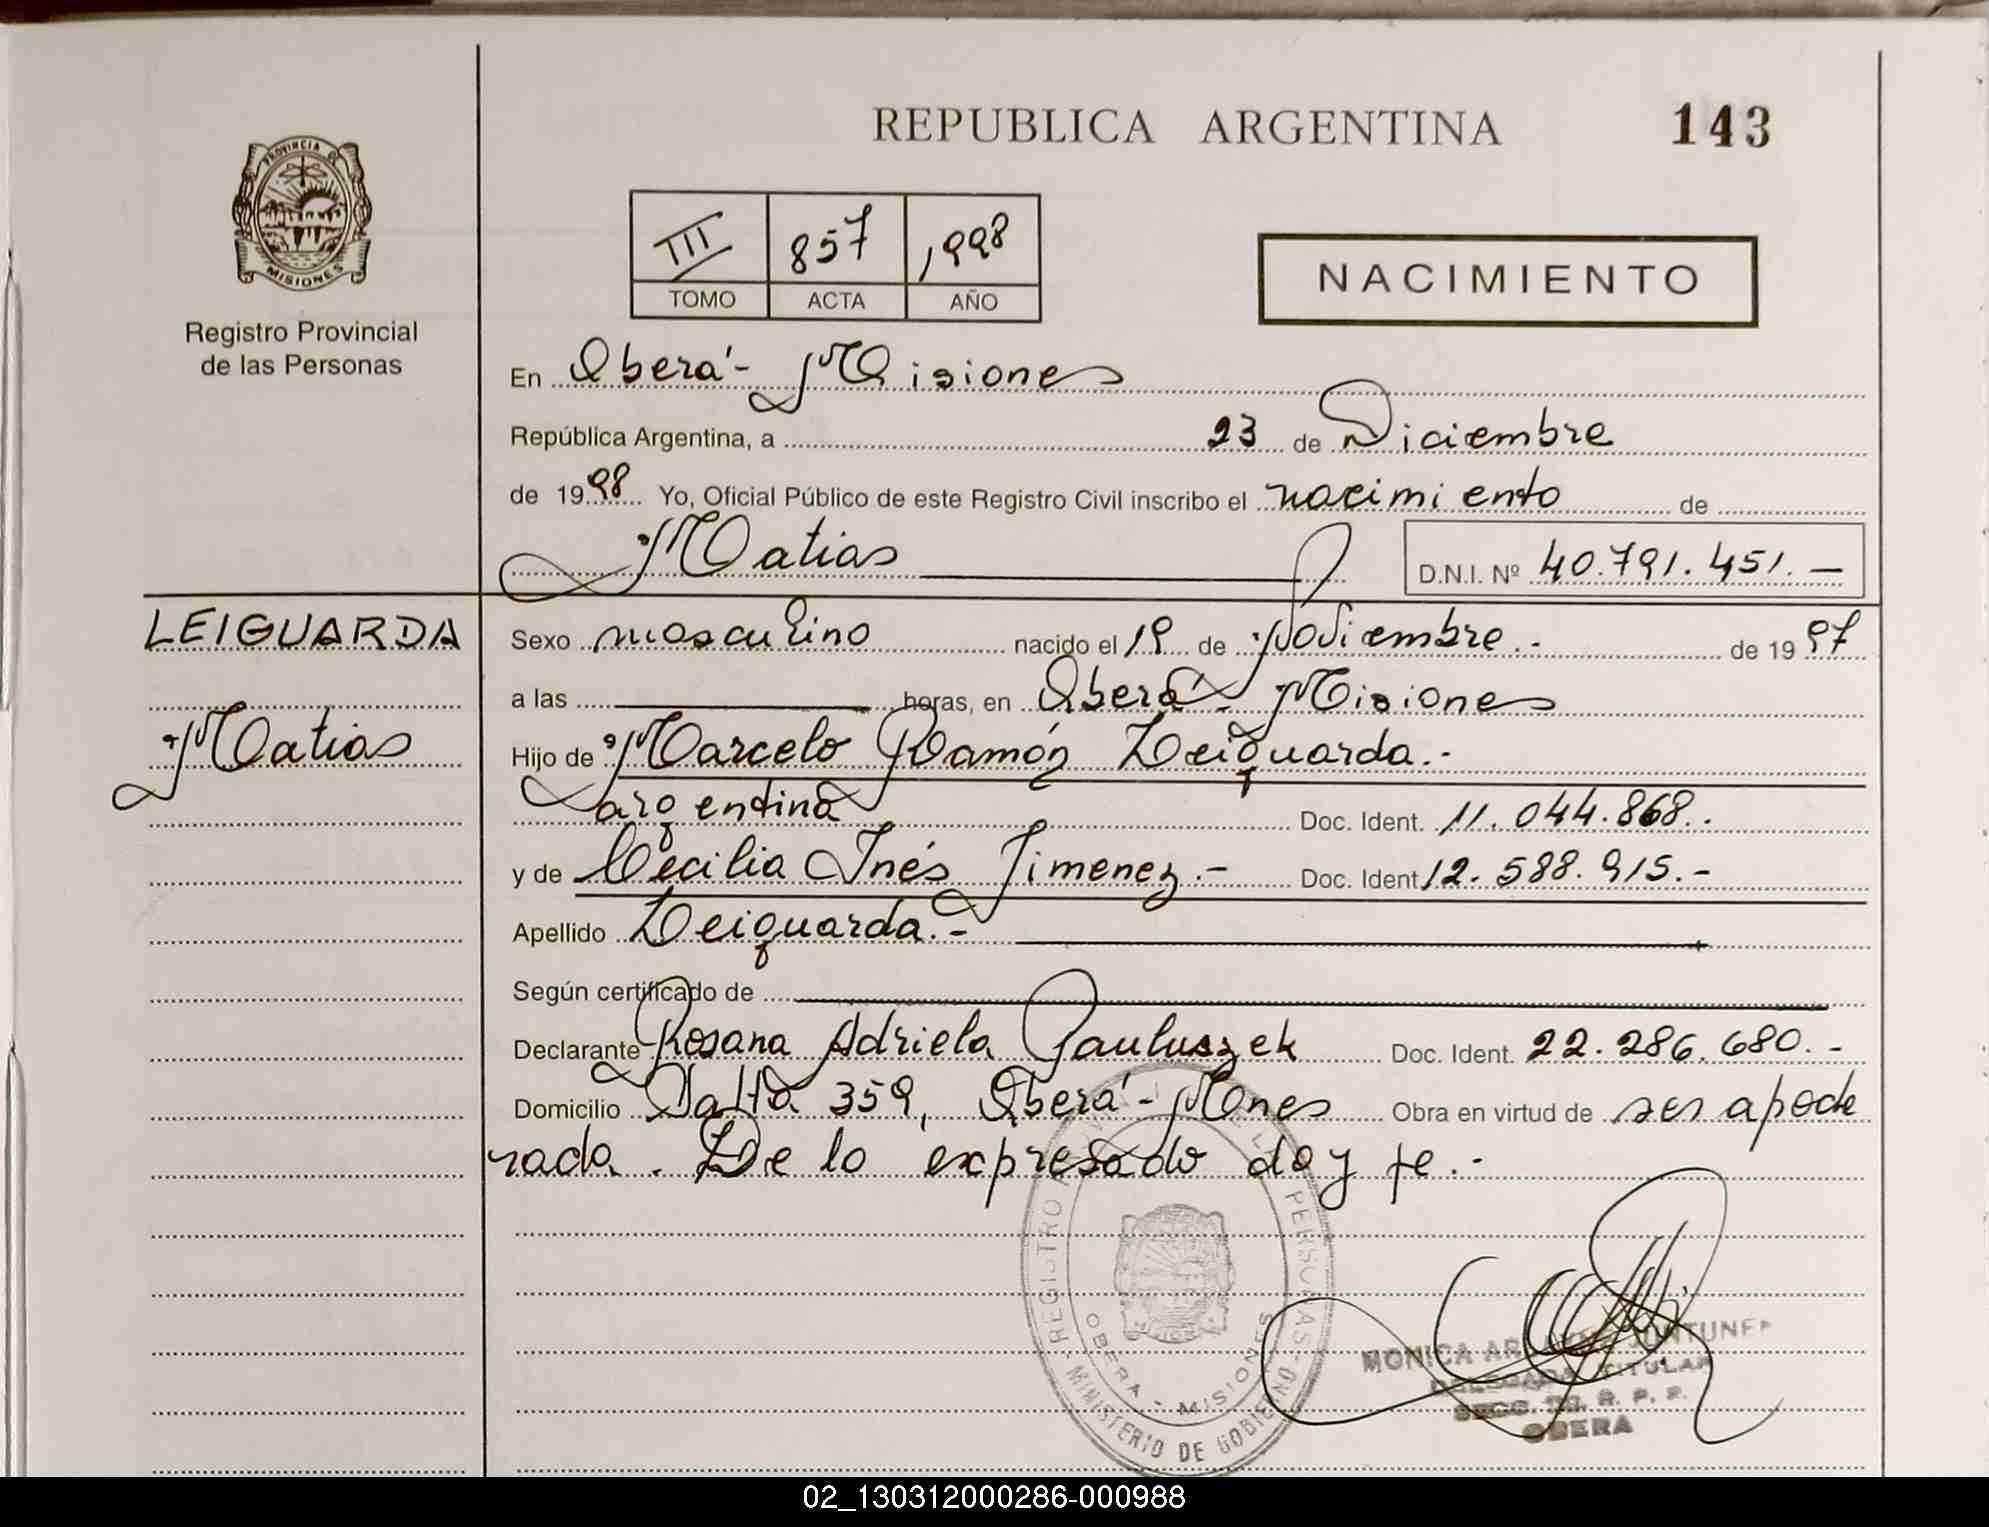 REPUBLICA ARGENTINA 143
PROVINCIA DE
MISIONES
Registro Provincial
de las Personas
III 857 1998
TOMO ACTA AÑO
NACIMIENTO
En Oberá - Misiones
República Argentina, a 23 de Diciembre
de 1998 Yo, Oficial Público de este Registro Civil inscribo el nacimiento de
Matias D.N.I. Nº 40.791.451.-
LEIGUARDA
Matias
Sexo masculino nacido el 19 de Noviembre.- de 1997
a las horas, en Oberá - Misiones
Hijo de Marcelo Ramón Leiguarda.-
argentina Doc. Ident. 11.044.868.-
y de Cecilia Inés Jimenez.- Doc. Ident 12.588.915.-
Apellido Leiguarda.-
Según certificado de
Declarante Rosana Adriela Pauluszek Doc. Ident. 22.286.680.-
Domicilio Salta 359, Oberá - Mnes Obra en virtud de ser apode
rada. De lo expresado doy fe.-
REGISTRO PERSONAS
OBERA - MISIONES
MINISTERIO DE GOBIERNO
MONICA
TITULAR
OBERA
02_130312000286-000988